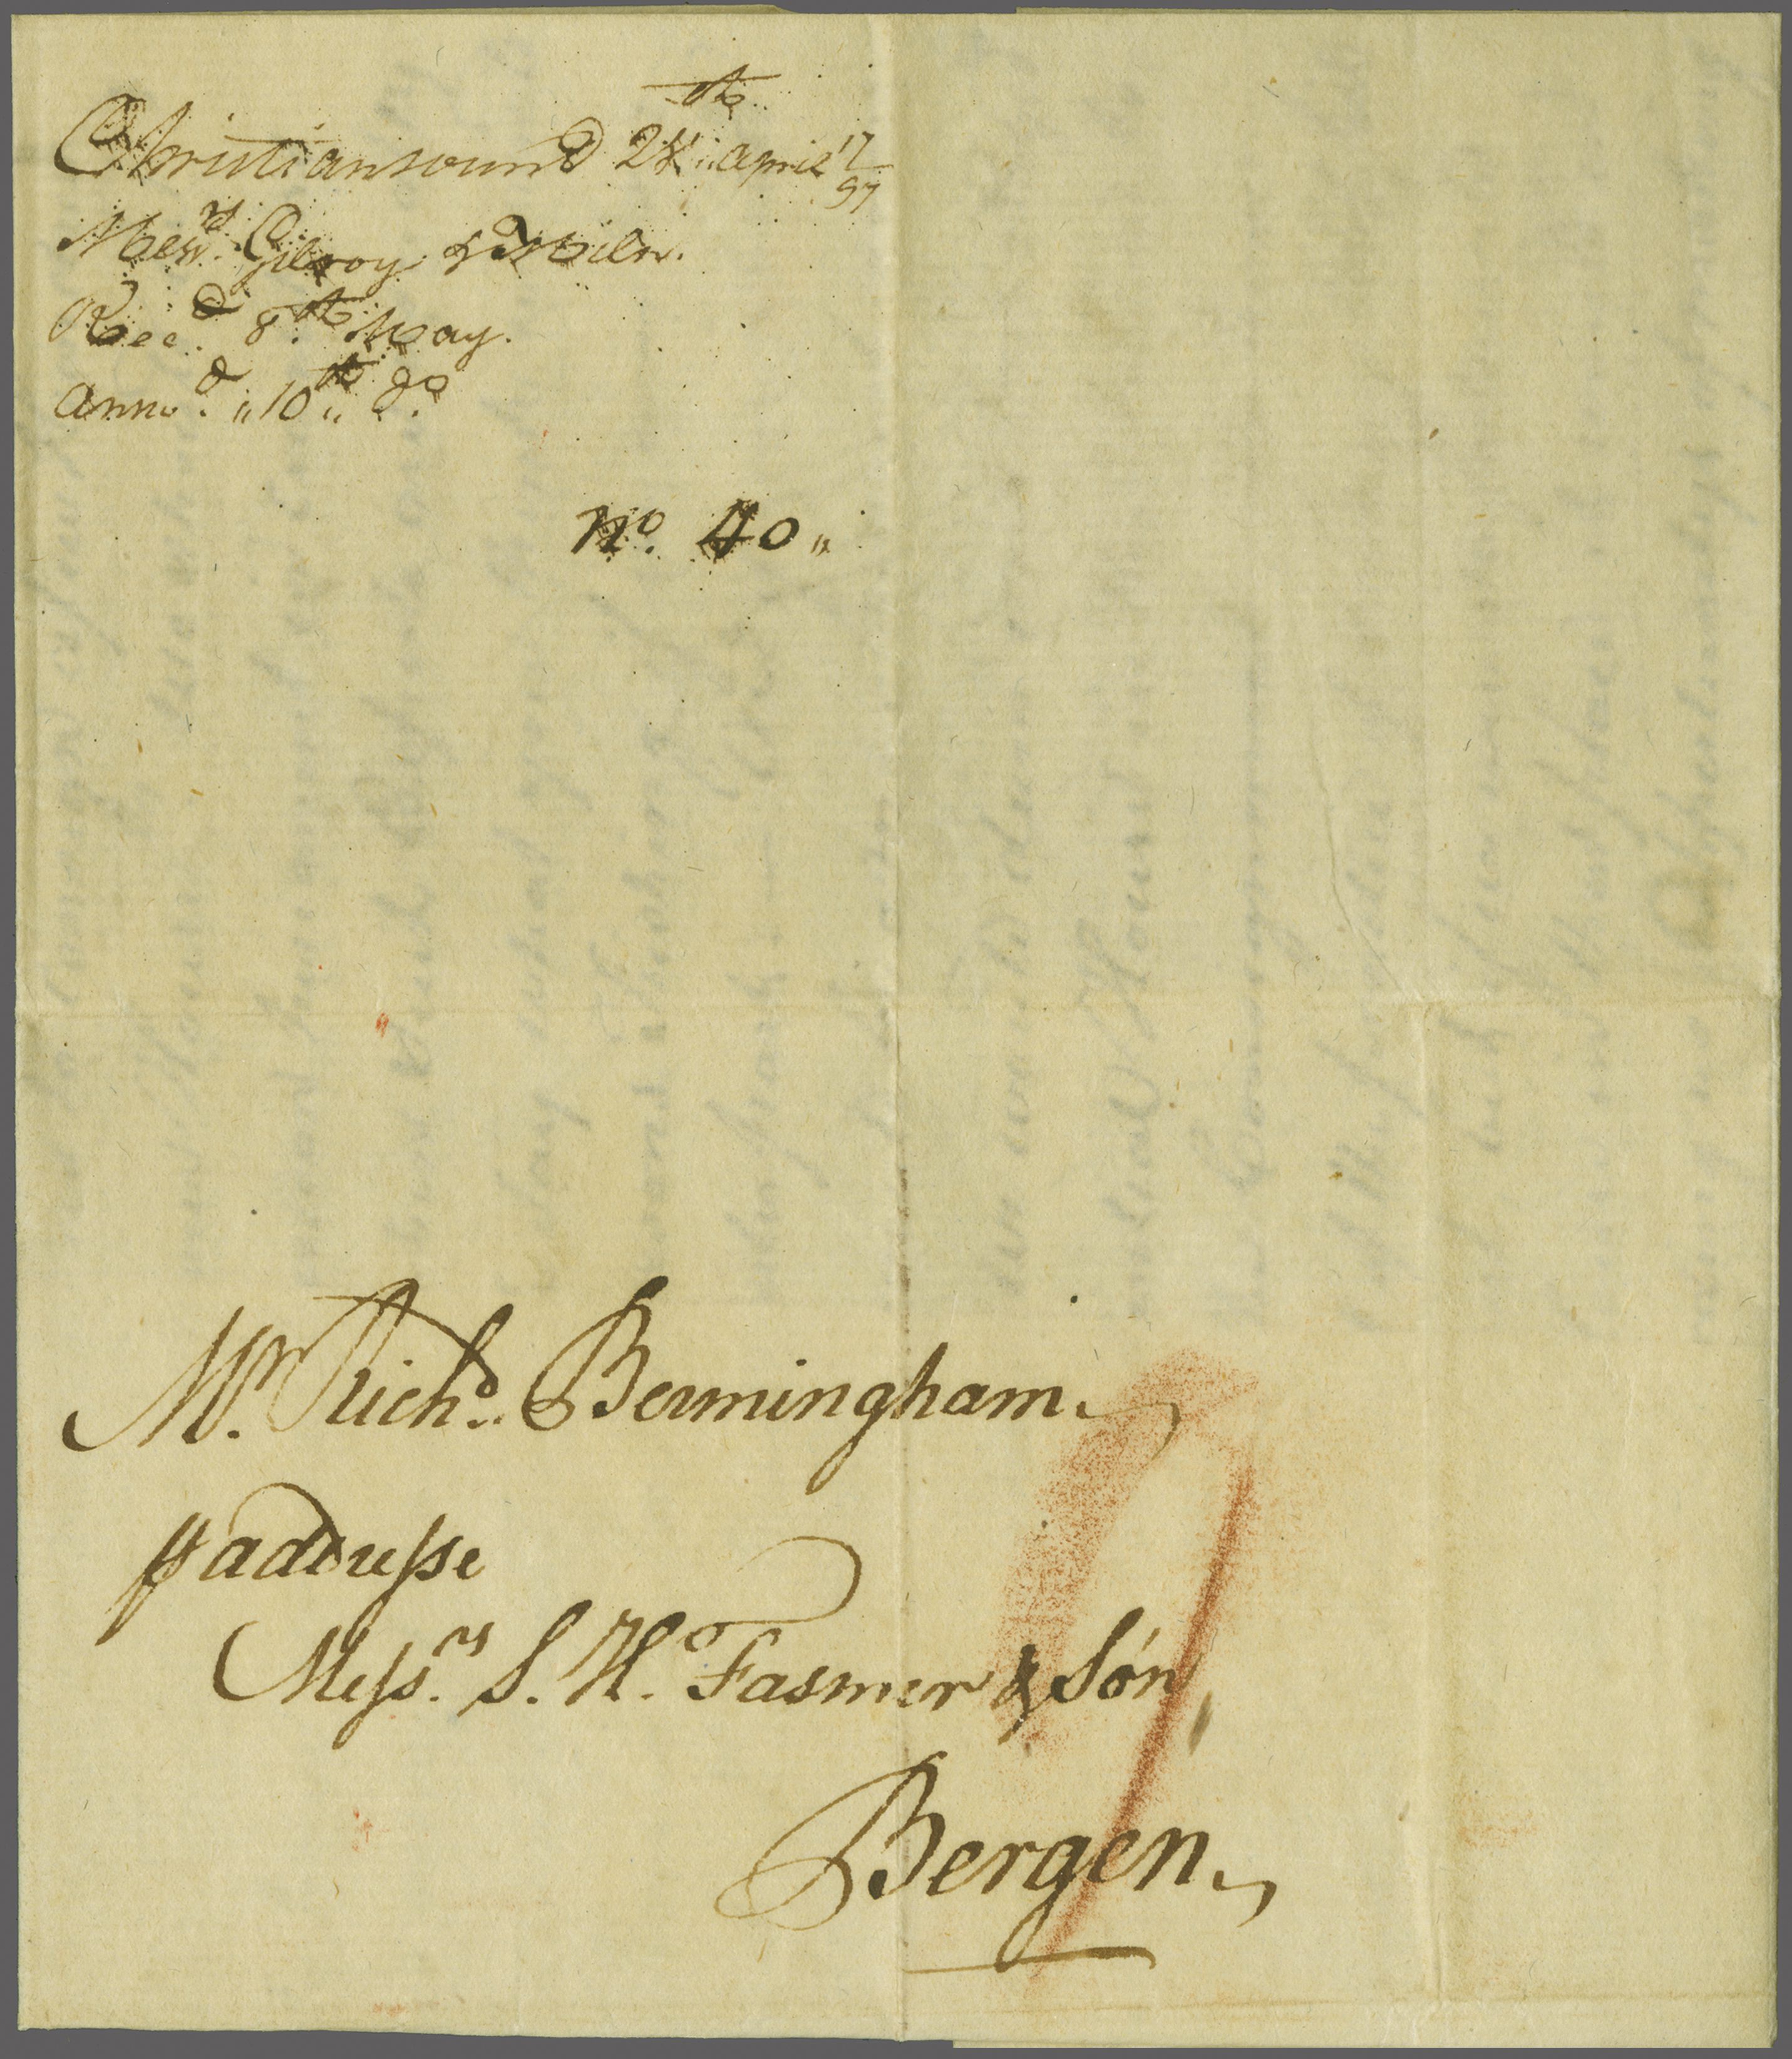 Christiansound 28th April 17/97
Messrs Gilroy & Miln.
Recd. 8th May.
Answd. "10th" do
No. 40"
Mr. Richd. Bermingham
p addresse
Messrs. S. H. Fasmer & Són
Bergen